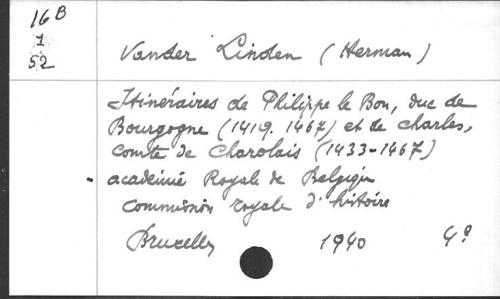 16B
1
52
Vander Linden (Herman)
Itinéraires de Philippe le Bon, duc de
Bourgogne (1419.1467) et de Charles,
comte de Charolais (1433-1467)
académie Royale de Belgique
commission royale d'histoire
Bruxelles 1940 4º